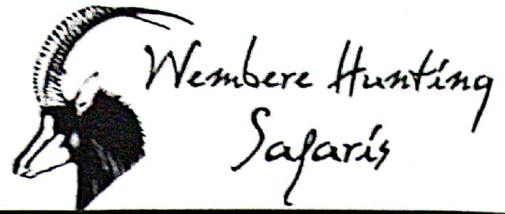 Wembere Hunting
Safaris